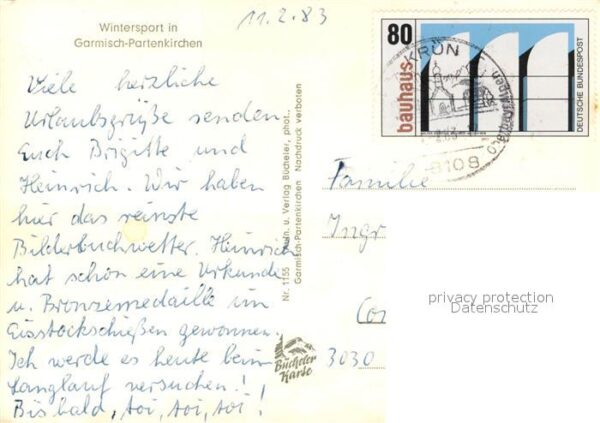 Wintersport in
Garmisch-Partenkirchen
11.2.83
Viele herzliche
Urlaubsgrüße senden
Euch Brigitte und
Heinrich. Wir haben
hier das reinste
Bilderbuchwetter. Heinrich
hat schon eine Urkunde
u. Bronzemedaille im
Eisstockschießen gewonnen.
Ich werde es heute beim
Langlauf versuchen!
Bis bald, toi, toi, toi!
Nr. 1155 u. Verlag Bücheler, phot.,
Garmisch-Partenkirchen Nachdruck verboten
Bücheler
Karte
80
bauhaus
DEUTSCHE BUNDESPOST
KRÜN
8108
Familie
Ingr
3030
privacy protection
Datenschutz